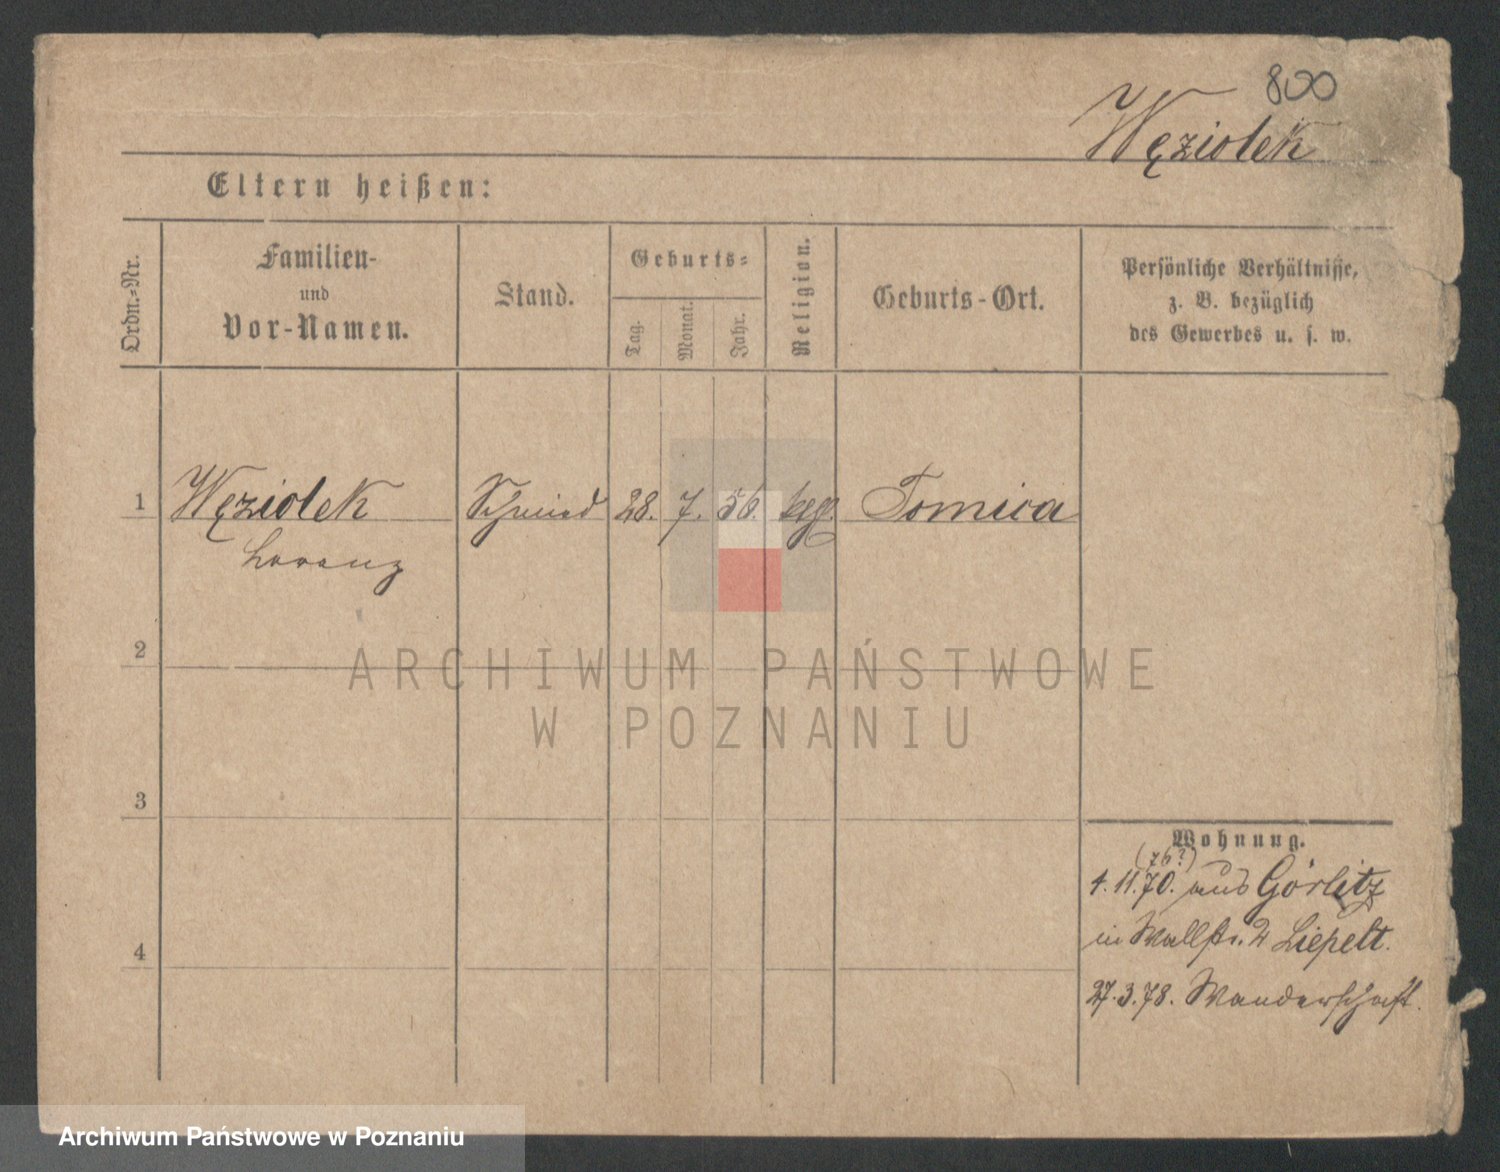 800
Węziołek
Eltern heißen:
Ordn.-Nr.
Familien-
und
Vor-Namen.
Stand.
Geburts-
Tag.
Monat.
Jahr.
Religion.
Geburts-Ort.
Persönliche Verhältnisse,
z. B. bezüglich
des Gewerbes u. s. w.
1 Węziołek Schmied 28. 7. 56. Tomica
Lorenz
2
ARCHIWUM PAŃSTWOWE
W POZNANIU
3
Wohnung.
(76?)
4.11.70. aus Görlitz
in Wallstr. 2 Liepelt.
4
27.3.78. Wanderschaft.
Archiwum Państwowe w Poznaniu